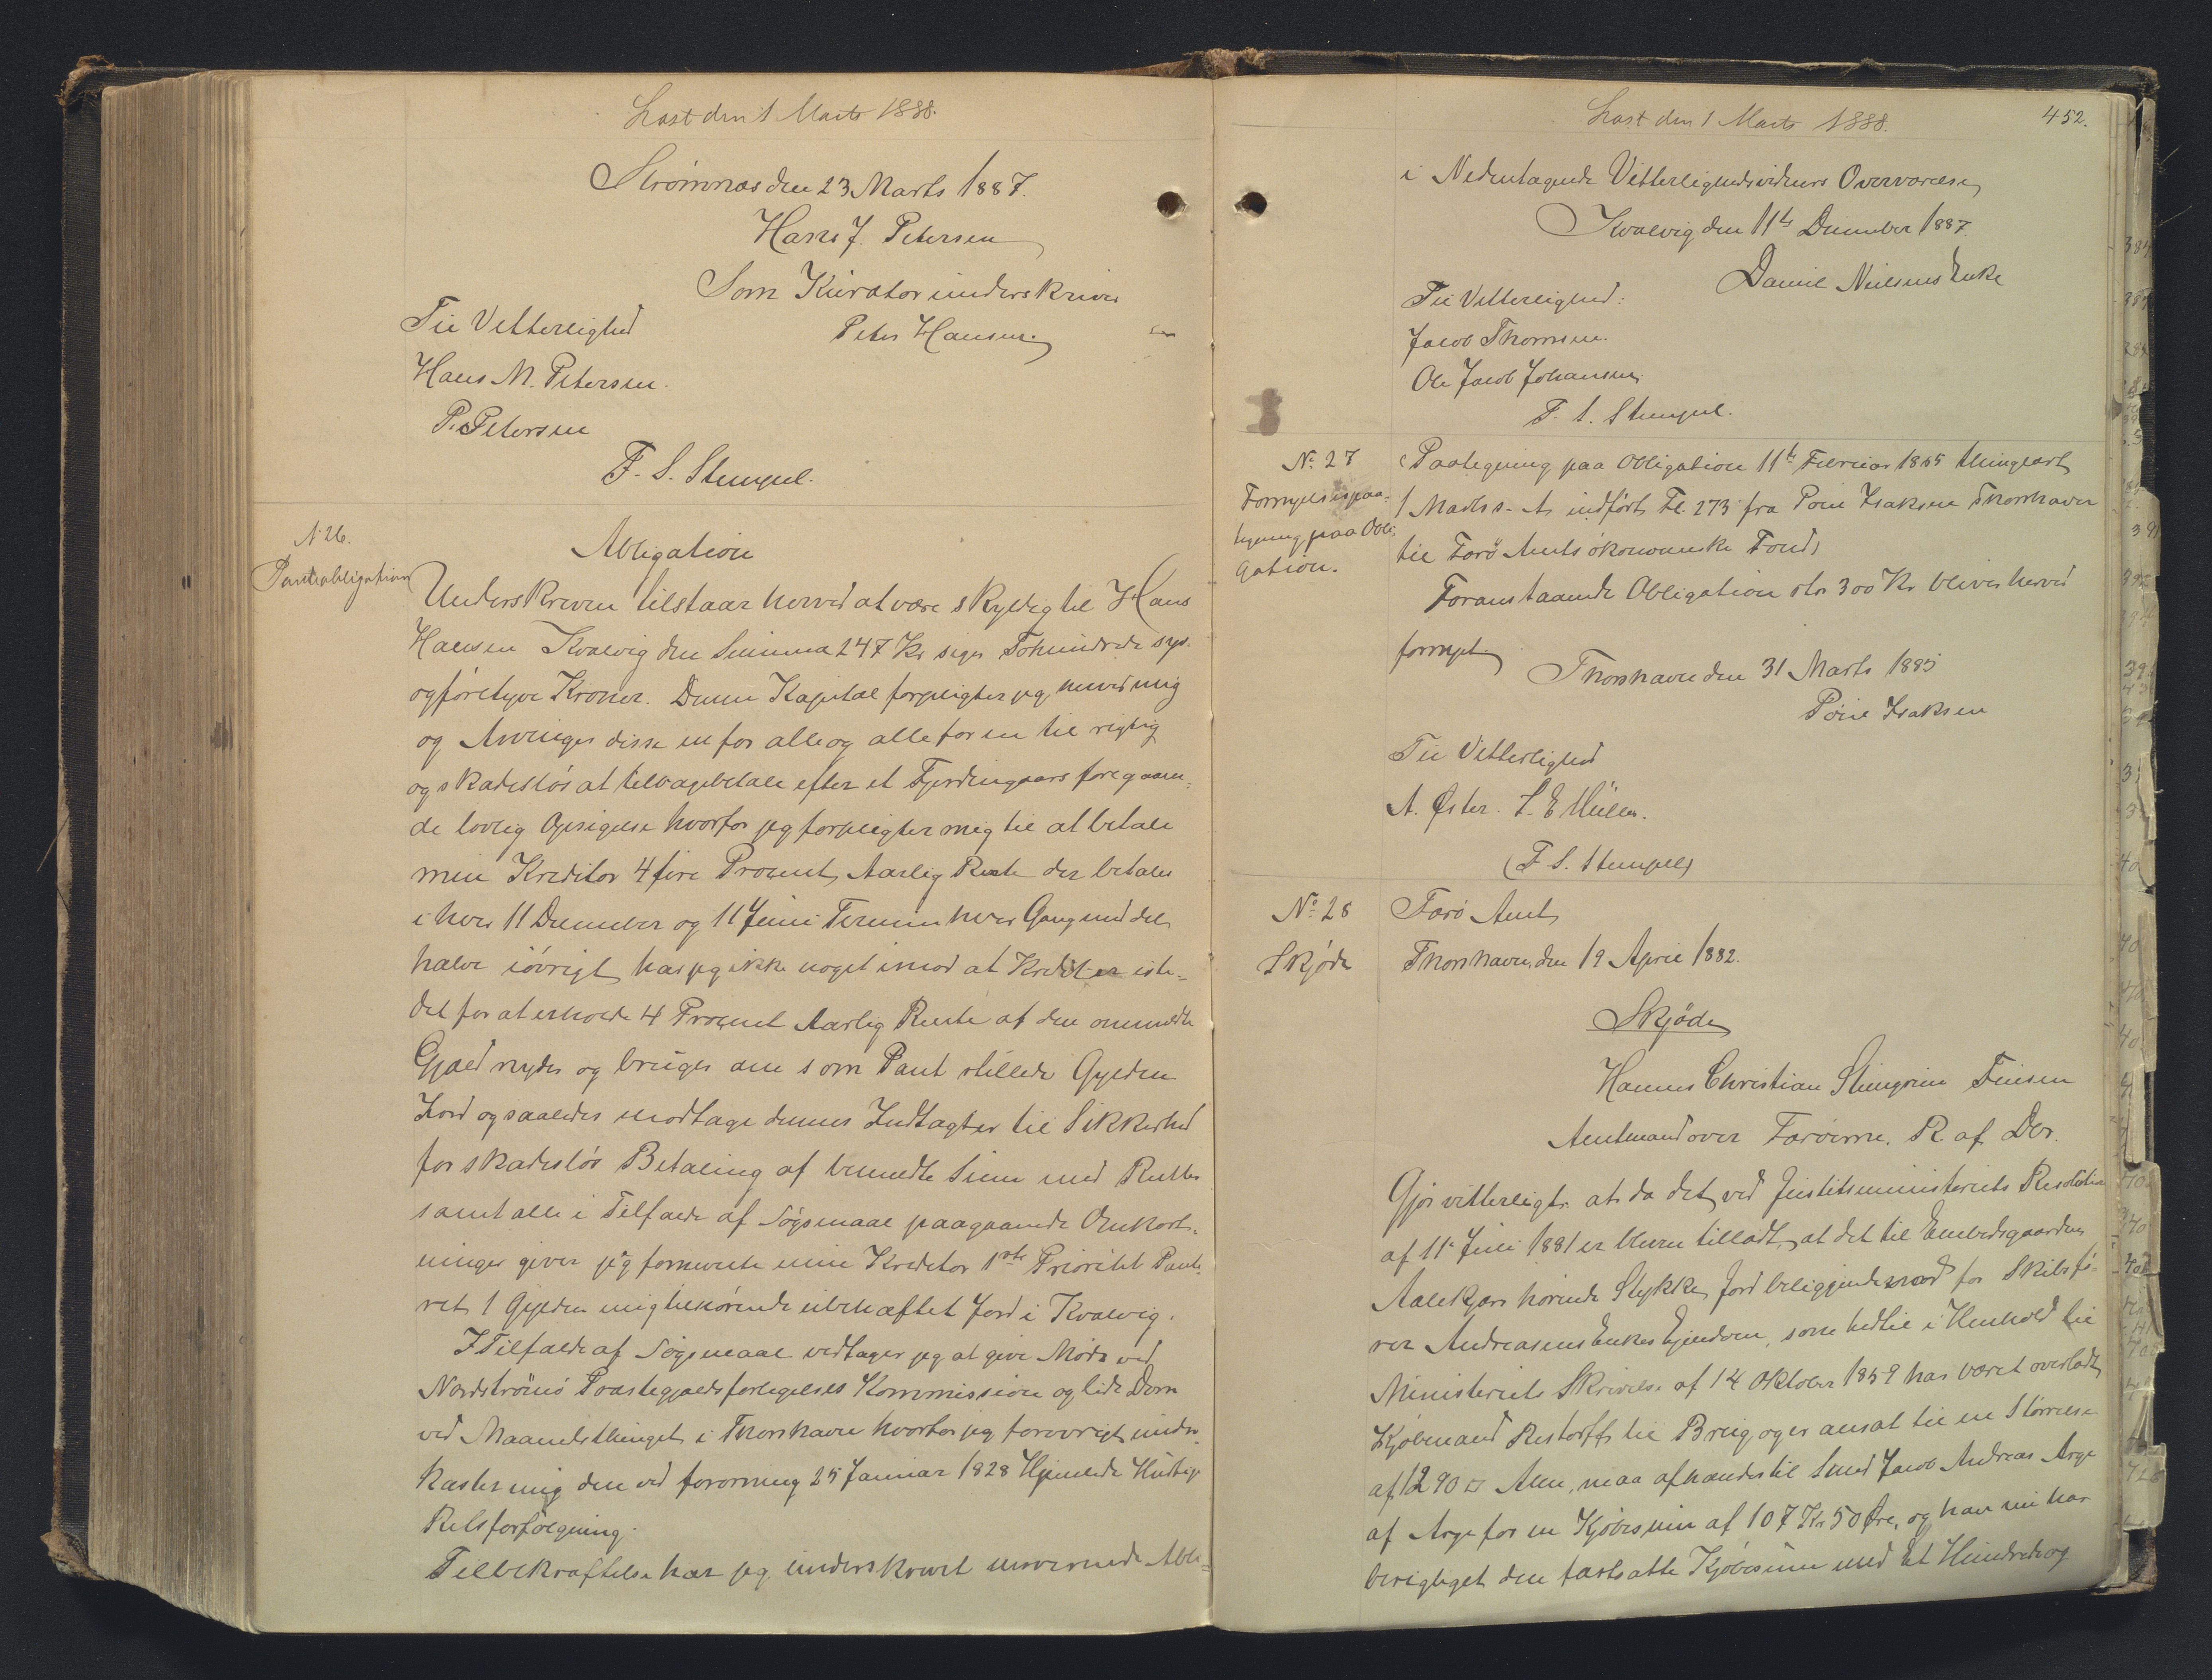 Læst den 1 Marts 1888.
Strømnæs den 23 Marts 1887.
Hans J. Petersen
Som Kurator underskriver
Til Vitterlighed
Peter Hansen.
Hans M. Petersen.
P. Petersen
F. S. Stempel.
N. 26.
Panteobligation
Abligation
Underskreven tilstaar herved at være skyldig til Hans
Hansen Kvalvig den Summa 247 Kr siger Tohundrede syv
og føretyve Kroner. Denne Kapital forpligter jeg herved mig
og Arvinger disse en for alle og alle for en til rigtig
og skadesløs at tilbagebetale efter et Fjerdingaars foregaaen-
de lovlig Opsigelse hvorfor jeg forpligter mig til at betale
min Kreditor 4 fire Procent Aarlig Rente der betales
i hver 11 December og 11 Juni Termin hver Gang med det
halve iøvrigt har jeg ikke noget imod at Kreditor iste-
det for at erholde 4 Procent Aarlig Rente af den ommeldte
Gjæld nyder og bruger den som Pant stillede Gylden
Jord og saaledes modtage dennes Indtægter til Sikkerhed
for skadesløs Betaling af bemeldte Sum med Renter
samt alle i Tilfælde af Søgsmaal paagaaende Omkost-
ninger giver jeg fornævnte min Kreditor 1ste Prioritet Pante-
ret 1 Gylden mig tilhørende ubehæftet Jord i Kvalvig.
I Tilfælde af Søgsmaal vedtager jeg at give Møde ved
Nordstrømø Præstegjælds forligelses Kommission og lide Dom
ved Maanedsthinget i Thorshavn hvorfor jeg forøvrigt under-
kaster mig den ved fororning 25 Januar 1828 Hjemlede Hurtige
Retsforfølgning.
Til bekræftelse har jeg underskrevet nærværende Abli-
Læst den 1 Marts 1888.
452.
i Nedentegnede Vitterlighedsvidners Overværelse
Kvalvig den 11te December 1887.
Daniel Nielsens Enke
Til Vitterlighed:
Jacob Thomsen.
Ole Jacob Johansen.
F. S. Stempel.
No. 27
Fornyelsespaa-
tegning paa Obli-
gation.
Paategning paa Obligation 11te Februar 1865 thinglæst
1 Marts s. A. indført Fl. 273 fra Poul Isaksen Thorshavn
til Færø Amts økonomiske Fond,
Foranstaaende Obligation stor 300 Kr bliver herved
fornyet.
Thorshavn den 31 Marts 1885
Poul Isaksen
Til Vitterlighed
A. Øster. L. E Müller.
(F. S. Stempel)
No. 28
Skjøde
Færø Amt,
Thorshavn, den 19 April 1882.
Skjøde
Hannes Christian Steingrim Finsen
Amtmand over Færøerne. R. af Dbr.
Gjør vitterligt: at da det ved Justitsministeriets Resolution
af 11 Juni 1881 er bleven tilladt, at det til Embedsgaarden
Aalekjær hørende Stykke Jord beliggende nord for Skibsfø-
rer Andreasens Enkes Ejendom, som hidtil i Henhold til
Ministeriets Skrivelse af 14 Oktober 1859 har været overladt
Kjøbmand Restorff til Brug og er ansat til en Størrelse
af 1290 □ Alen, maa afhændes til Smed Jacob Andreas Arge
af Arge for en Kjøbesum af 107 Kr 50 Øre, og han nu har
berigtiget den fastsatte Kjøbesum med Et Hundrede og